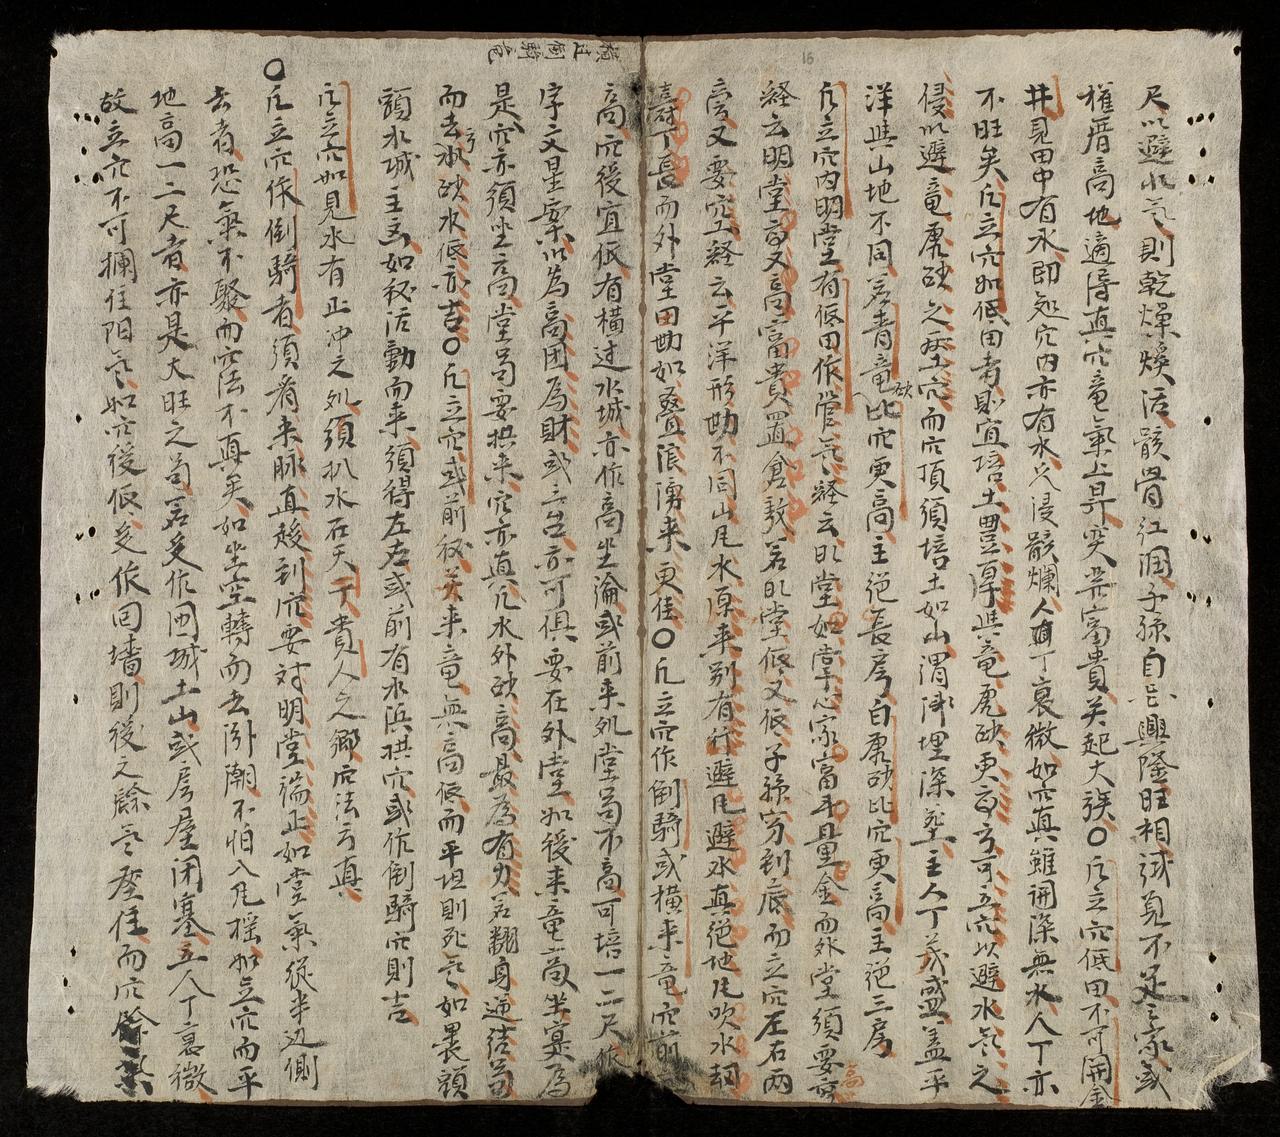 尺以避水氣則乾燥煖活骸骨紅潤子孫自然興隆旺相誠見不足之家或
權厝高地適得真穴竜氣上昇突然富貴矣起大族○凡立穴低田不可開金
井見田中有水即知穴内亦有水久浸骸爛人丁衰微如穴真雖開深無水人丁亦
不旺矣凡立穴如低田者則宜培土豊厚與竜虎砂更高方可立穴以避水气之
侵以避竜虎砂之壓穴而穴頂須培土如山謂淺埋深塟主人丁茂盛蓋平
洋與山地不同若青竜砂比穴更高主絶長房白虎砂比穴更高主絶三房
凡立穴内明堂有低田作管气経云明堂如掌心家富斗量金而外堂須要高
経云明堂高又高富貴置倉敖若明堂低又低子孫穷到底而立穴左右兩
旁又要空経云平洋形勢不同山凡水原来别有行避凡避水真絶地凡吹水劫
壽丁長而外堂田勢如疊浪湧来更佳○凡立穴作倒騎或横来竜穴前
高穴後宜低有横过水城亦作高坐論或前来处堂局不高可培一二尺作
字文星案以為高团為財或三台亦可俱要在外堂如後来竜高坐窠為
是穴亦須坐高堂局要拱来穴亦真凡水外砂高最為有力若翻身逆结局
而去水砂水低亦吉○凡立穴或前秘若来竜無高低而平坦則死气如裹頭
頭水城主凶如秘活動而来須得左右或前有水浜拱穴或作倒騎穴則吉
凡立穴如見水有正冲之処須扒水在天干貴人之鄉穴法方真
○凡立穴作倒騎者須看来脉直趍到穴要対明堂端正如堂氣從半边側
去者恐氣不聚而穴法不真矣如坐空轉而去汐潮不怕入凡摇如立穴而平
地高一二尺者亦是大旺之局若受作囬城土山或房屋闭塞主人丁衰微
故立穴不可攔住阳气如穴後低受作回墙則後之餘气塞住而穴餘其
横立倒騎高
16